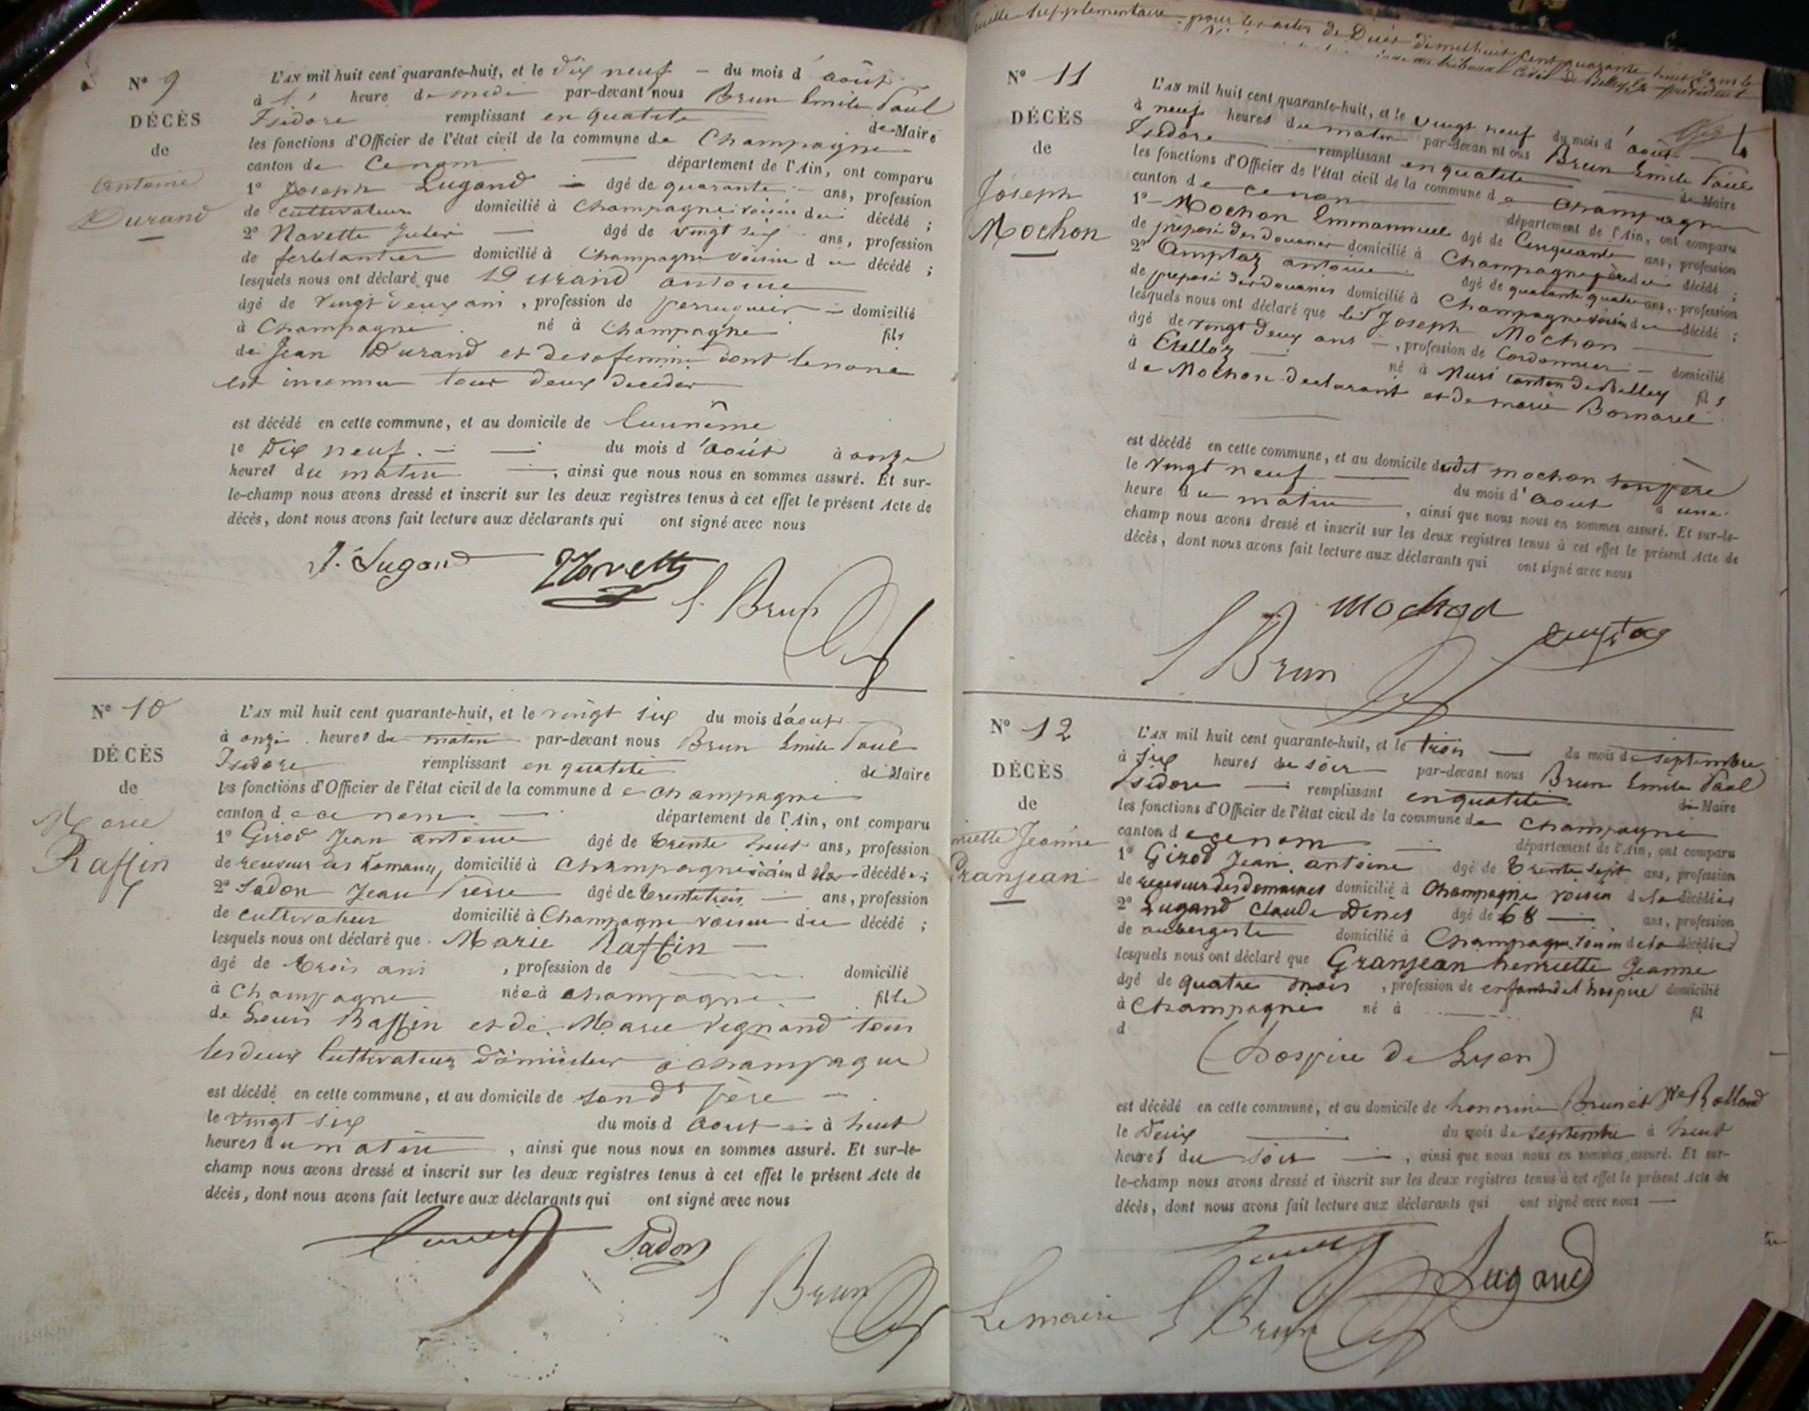 N° 9
DÉCÈS
de
Antoine
Durand
L'AN mil huit cent quarante-huit, et le dix neuf — du mois d'août
à 1 heure de par-devant nous Brun Emile Paul
Isidore remplissant en qualité de Maire
les fonctions d'Officier de l'état civil de la commune de Champagne
canton de département de l'Ain, ont comparu
1° Joseph Lugand — âgé de quarante — ans, profession
de cultivateur domicilié à Champagne voisin du décédé ;
2° Navette — âgé de vingt six — ans, profession
de ferblantier domicilié à Champagne voisin du décédé ;
lesquels nous ont déclaré que Durand antoine
âgé de vingt deux ans, profession de perruquier — domicilié
à Champagne né à Champagne fils
de Jean Durand et de sa femme dont le nom
est inconnu tous deux décédés
est décédé en cette commune, et au domicile de
le Dix neuf — du mois d'août à onze
heures du matin —, ainsi que nous nous en sommes assuré. Et sur-
le-champ nous avons dressé et inscrit sur les deux registres tenus à cet effet le présent Acte de
décès, dont nous avons fait lecture aux déclarants qui ont signé avec nous
J. Lugand Navette
Brun
N° 10
DÉCÈS
de
Marie
Raffin
L'AN mil huit cent quarante-huit, et le vingt six du mois d'août
à onze heures du matin par-devant nous Brun Emile Paul
Isidore remplissant en qualité de Maire
les fonctions d'Officier de l'état civil de la commune de champagne
canton de — département de l'Ain, ont comparu
1° Girod Jean antoine âgé de trente huit ans, profession
de receveur des domicilié à Champagne voisin d décédé ;
2° Sadon Jean Pierre âgé de trente trois — ans, profession
de cultivateur domicilié à Champagne voisin du décédé ;
lesquels nous ont déclaré que Marie Raffin —
âgé de trois ans, profession de — domicilié
à Champagne née à champagne — fille
de Louis Raffin et de Marie Vignand tous
les deux cultivateurs domiciliés à champagne
est décédé en cette commune, et au domicile de son d' père —
le vingt six du mois d'aout — à huit
heures du matin —, ainsi que nous nous en sommes assuré. Et sur-le-
champ nous avons dressé et inscrit sur les deux registres tenus à cet effet le présent Acte de
décès, dont nous avons fait lecture aux déclarants qui ont signé avec nous
Sadon
Brun
feuille supplémentaire pour les actes de Décès de mil huit cent quarante huit
N° 11
DÉCÈS
de
Joseph
Mochon
L'AN mil huit cent quarante-huit, et le vingt neuf du mois d'août
à neuf heures du matin par-devant nous Brun Emile Paul
Isidore — remplissant en qualité — de Maire
les fonctions d'Officier de l'état civil de la commune de Champagne
canton de département de l'Ain, ont comparu
1° Mochon Emmanuel âgé de Cinquante ans, profession
de préposé des douanes domicilié à Champagne père du décédé ;
2° antoine âgé de quarante quatre ans, profession
de préposé des douanes domicilié à Champagne voisin du décédé ;
lesquels nous ont déclaré que le Joseph Mochon —
âgé de vingt deux ans —, profession de Cordonnier — domicilié
à — né à Murs canton de Belley fils
de Mochon declarant et de marie
est décédé en cette commune, et au domicile dudit mochon son père
le vingt neuf — du mois d'aout à une
heure du matin —, ainsi que nous nous en sommes assuré. Et sur-le-
champ nous avons dressé et inscrit sur les deux registres tenus à cet effet le présent Acte de
décès, dont nous avons fait lecture aux déclarants qui ont signé avec nous
Mochon
Brun
N° 12
DÉCÈS
de
Jeanne
Granjean
L'AN mil huit cent quarante-huit, et le trois — du mois de septembre
à six heures du soir — par-devant nous Brun Emile Paul
Isidore — remplissant en qualité de Maire
les fonctions d'Officier de l'état civil de la commune de champagne
canton de — département de l'Ain, ont comparu
1° Girod Jean antoine âgé de trente sept ans, profession
de receveur des domaines domicilié à Champagne voisin de la décédée
2° Lugand Claude Denis âgé de 68 — ans, profession
de aubergiste domicilié à Champagne voisin de la décédée
lesquels nous ont déclaré que Granjean henriette Jeanne
âgé de quatre mois, profession de enfant del hospice domicilié
à Champagne né à — fil
d
(hospice de Lyon)
est décédé en cette commune, et au domicile de honorine Brunet Ve Rolland
le Deux — du mois de septembre à huit
heures du soir —, ainsi que nous nous en sommes assuré. Et sur-
le-champ nous avons dressé et inscrit sur les deux registres tenus à cet effet le présent Acte de
décès, dont nous avons fait lecture aux déclarants qui ont signé avec nous —
Lugand
Le maire Brun